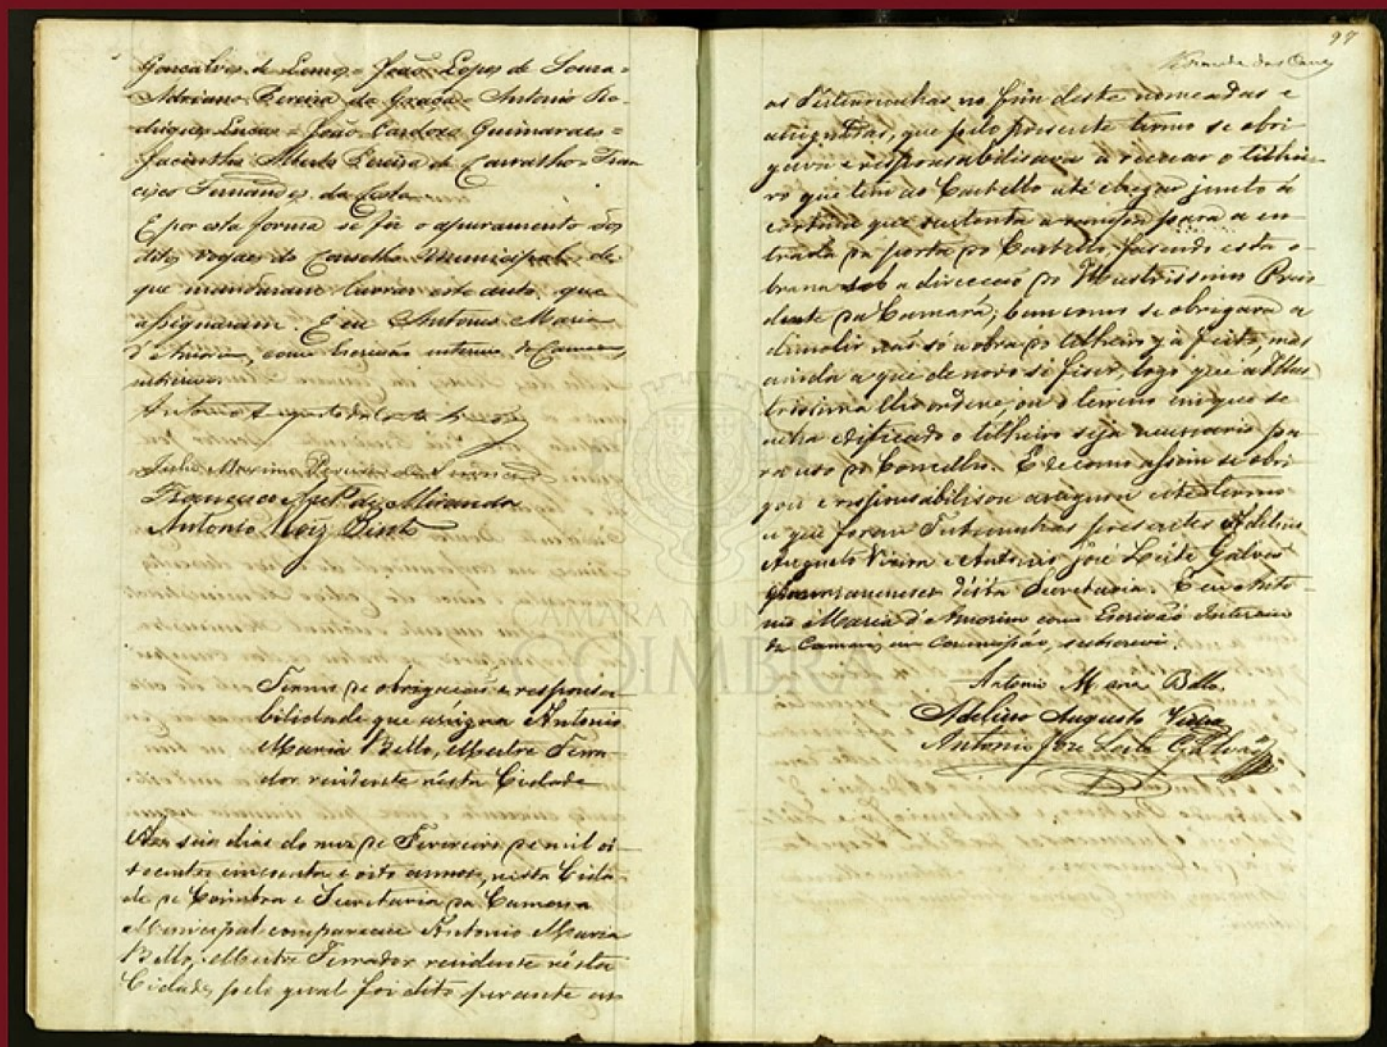 Gonsalves de Lemos = João Lopes de Souza =
Adriano Pereira da Graça = Antonio Ro-
drigues Lucas = João Cardoso Guimaraes =
Jacintho Alberto Pereira de Carvalho = Fran
cisco Fernandes da Costa
E por esta forma se fez o apuramento dos
ditos vogaes do Conselho Municipal, de
que mandaram lavrar este auto, que
assignaram. E eu Antonio Maria
d'Amorim, como Escrivão interino da Camara,
subscrevi
Antonio Augusto da Costa
Francisco de Miranda
Antonio
Termo de obrigação e responsa-
bilidade que assigna Antonio
Maria Bello, Mestre Ferra-
dor residente nésta Cidade
Aos seis dias do mez de Fevereiro de mil oi-
tocentos cincoenta e oito annos, nésta Cida-
de de Coimbra e Secretaria da Camara
Municipal compareceu Antonio Maria
Bello, Mestre Ferrador residente nésta
Cidade, pelo qual foi dito perante as
97
as Testemunhas no fim deste nomeadas e
assignadas, que pelo presente termo se obri
gava e responsabilisava a recuar o telhei-
ro que tem ao Castello até chegar junto á
cortina que sustenta a rampa para a en
trada da porta do Castello fasendo esta o
bra sob a direcção do Illustrissimo Presi
dente da Camará; bem como se obrigava a
demolir não só a obra do telheiro já feita, mas
ainda a que de novo se fiser, logo que a Illus
trissima lho ordene, ou o terreno em que se
acha edificado o telheiro seja necessario pa
ra uso do Concelho. E de como assim se obri
gou e responsabilisou assignou este termo
a que foram Testemunhas presentes Adelino
Augusto Vieira e Antonio José Leite Galvão
Amanuenses désta Secretaria. E eu Anto-
nio Maria d'Amorim como Escrivão Interino
da Camara, em Commissão, subscrevi.
Antonio Maria Bello.
Adelino Augusto Vieira
Antonio Jose Leite Galvão
CAMARA MUNICIPAL
COIMBRA